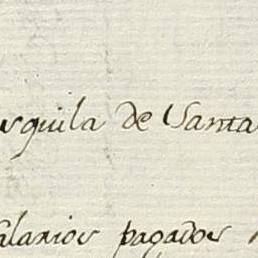 esquila de Santa
Salarios pagados